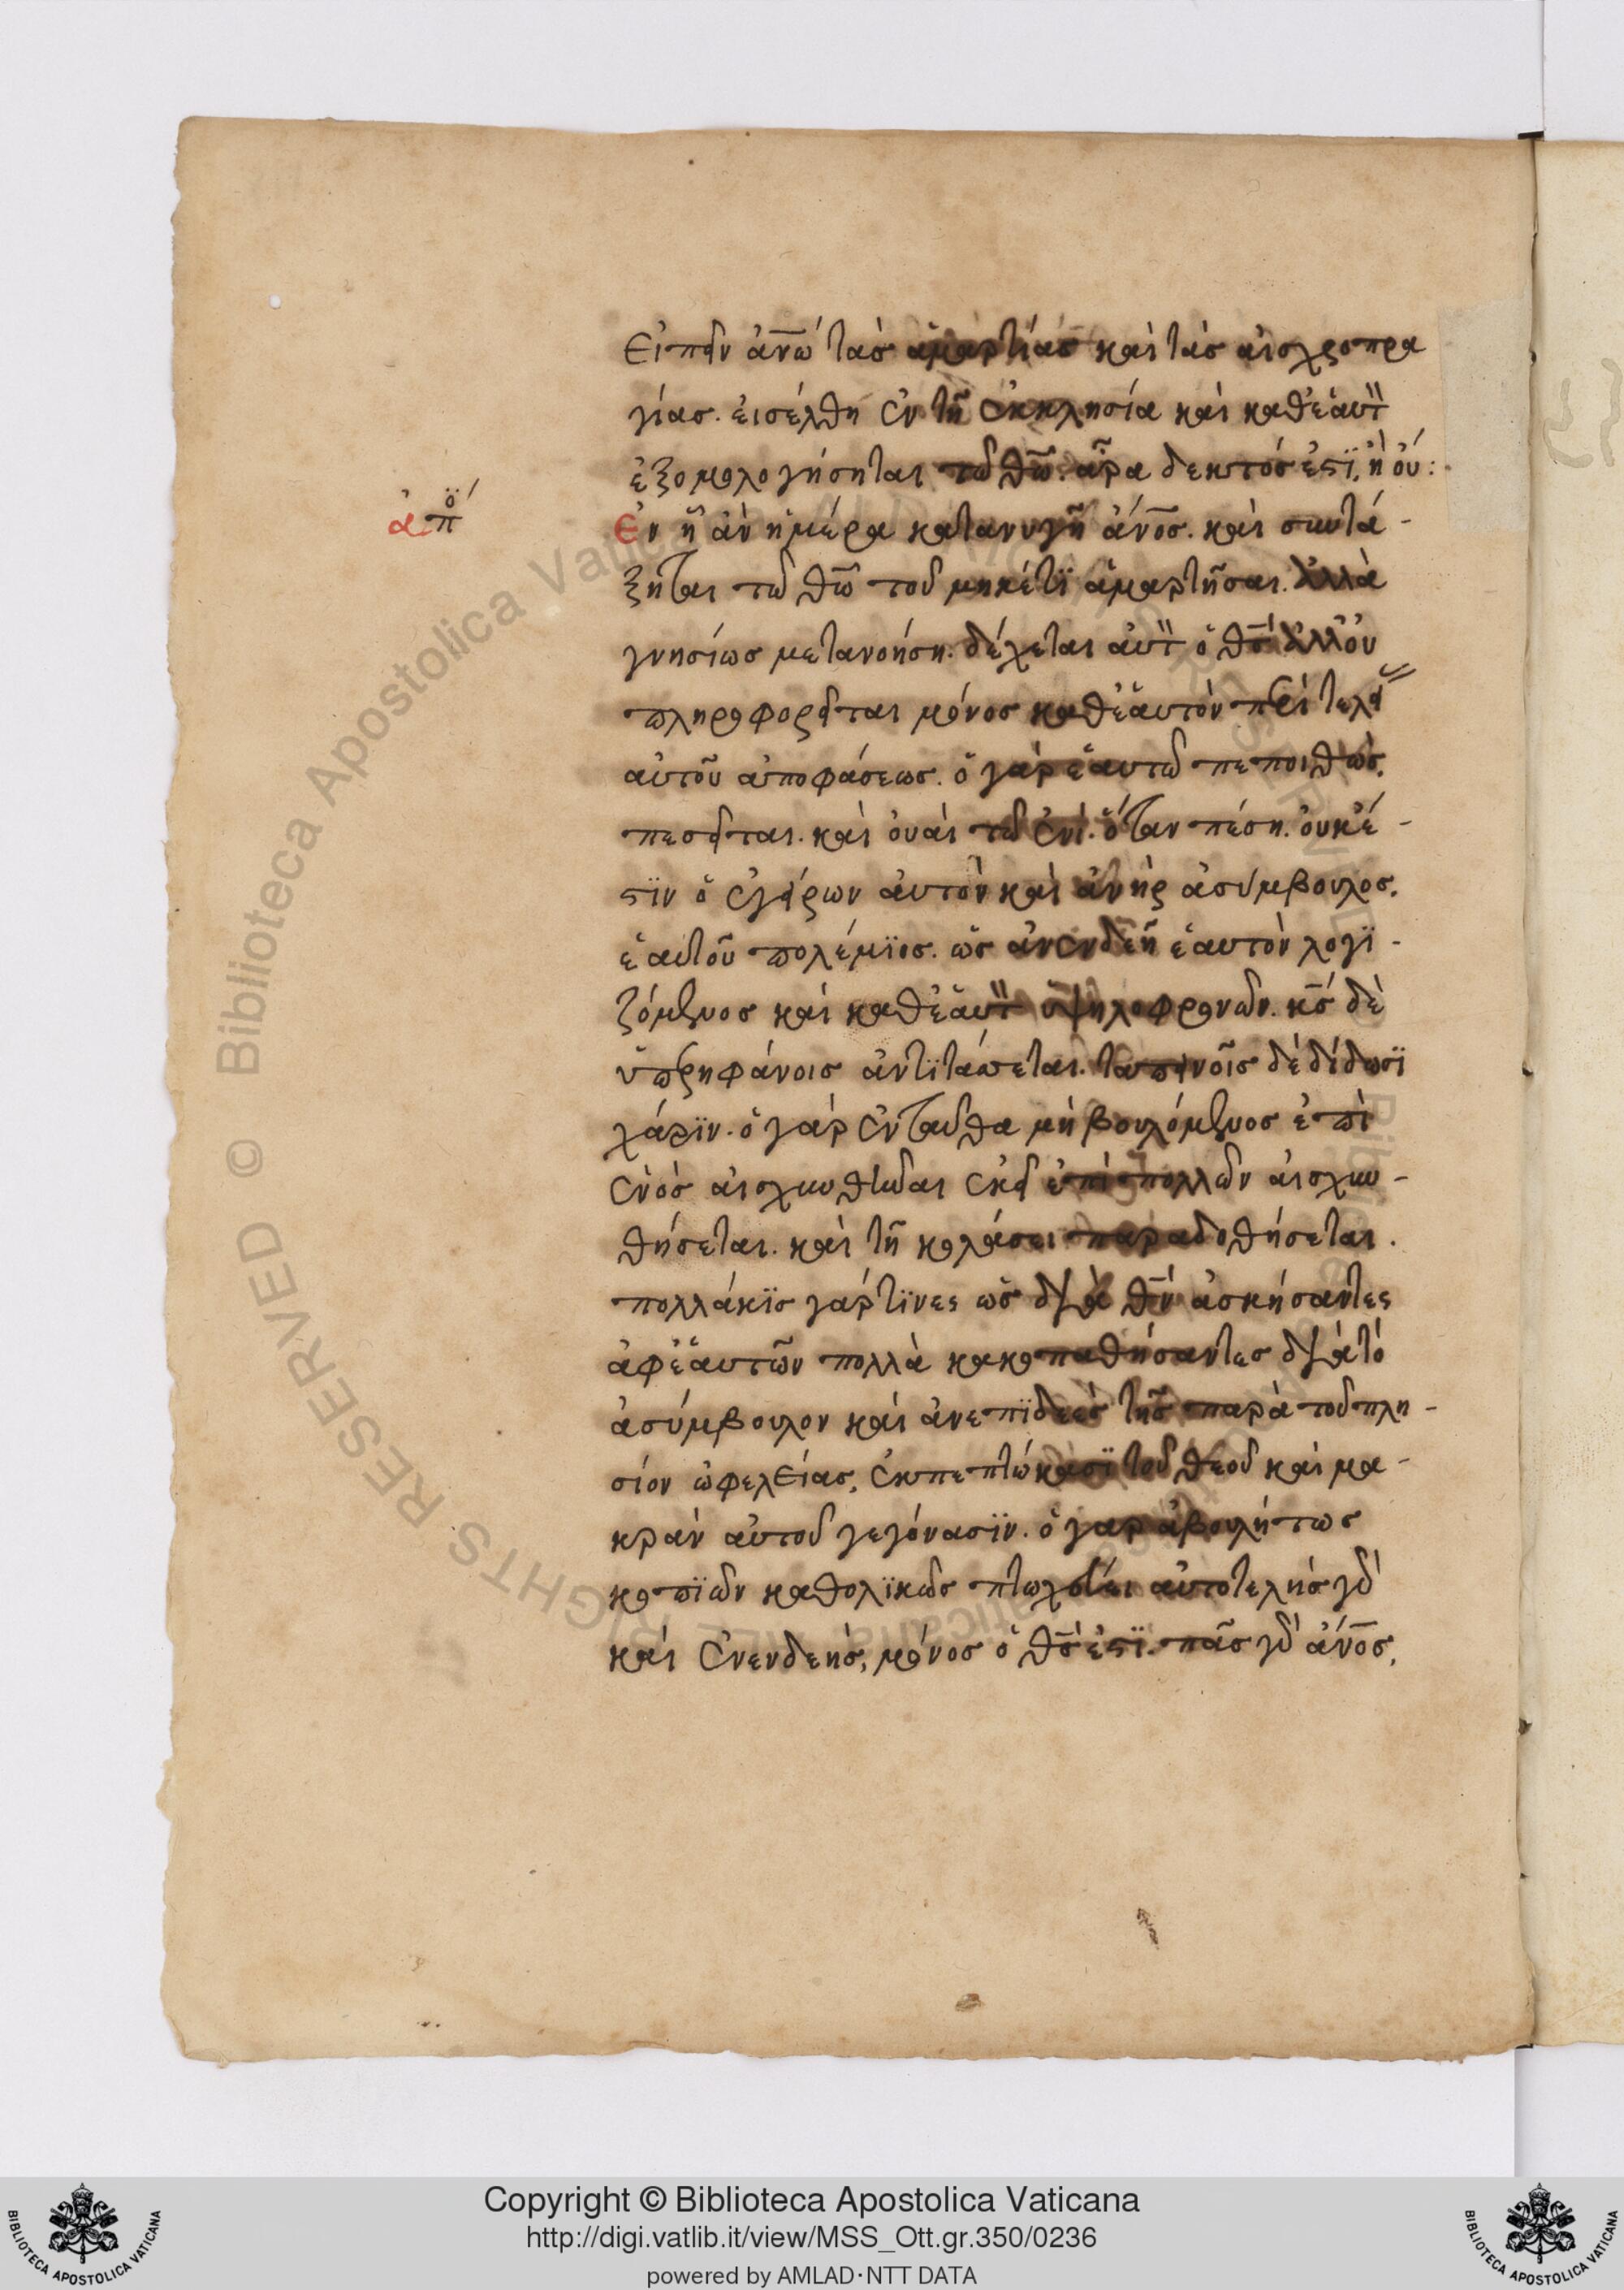 εἰπεῖν ἀνω τὰς ἁμαρτίας καὶ τὰς αἰσχροπρα
γίας. εἰσέλθη ἐν τῆ ἐκκλησία καὶ καθἑαυτ
ἐξομολογήσηται τῶ θω. ἆρα δεκτός ἐστϊ, ἢ οὐ:
ἀπό
Ἐν ῆ ἂν ἡμέρα κατανυγῆ ἄνος. καὶ συντά-
ξηται τῶ θω τοῦ μηκέτϊ ἁμαρτῆσαι. ἀλλὰ
γνησίως μετανοήση. δέχεται αὐτ ὁ θς ἀλλοὐ
πληροφορεῖται μόνος καθἑαυτὸν περὶ τελεί
αὐτοῦ ἀποφάσεως. ὁ γὰρ ἑαυτῶ πεποιθὼς,
πεσεῖται. καὶ οὐαὶ τῶ ἑνὶ. ὅταν πέση. οὐκέ-
στϊν ὁ ἐγείρων αὐτὸν καὶ ἀνὴρ ἀσύμβουλος,
ἑαυτοῦ πολέμϊος. ὡς ἀνενδεῆ ἑαυτὸν λογϊ-
ζόμενος καὶ καθἑαυτ ὑψηλοφρονῶν. κς δὲ
ὑπερηφάνοις ἀντϊτάσσεται. ταπεινοῖς δὲ δίδωσϊ
χάρϊν. ὁ γὰρ ἐνταῦθα μὴ βουλόμενος ἐπὶ
ἑνὸς αἰσχυνθῆναι ἐκεῖ ἐπὶ πολλῶν αἰσχυν-
θήσεται. καὶ τῆ κολάσει παραδοθήσεται.
πολλάκϊς γάρ τϊνες ὡς διὰ θν ἀσκήσαντες
ἀφἑαυτῶν πολλὰ κακοπαθήσαντες διὰ τὸ
ἀσύμβουλον καὶ ἀνεπϊδεὲς τῆς παρὰ τοῦ πλη-
σίον ὠφελείας, ἐκπεπτώκασϊ τοῦ θεοῦ καὶ μα-
κρὰν αὐτοῦ γεγόνασϊν. ὁ γὰρ ἀβουλήτως
κοπϊῶν καθολϊκῶς πτωχεύει αὐτοτελὴς γὰρ
καὶ ἀνενδεὴς, μόνος ὁ θς ἐστϊ. πᾶς γὰρ ἄνος,
Copyright © Biblioteca Apostolica Vaticana
http://digi.vatlib.it/view/MSS_Ott.gr.350/0236
powered by AMLAD·NTT DATA